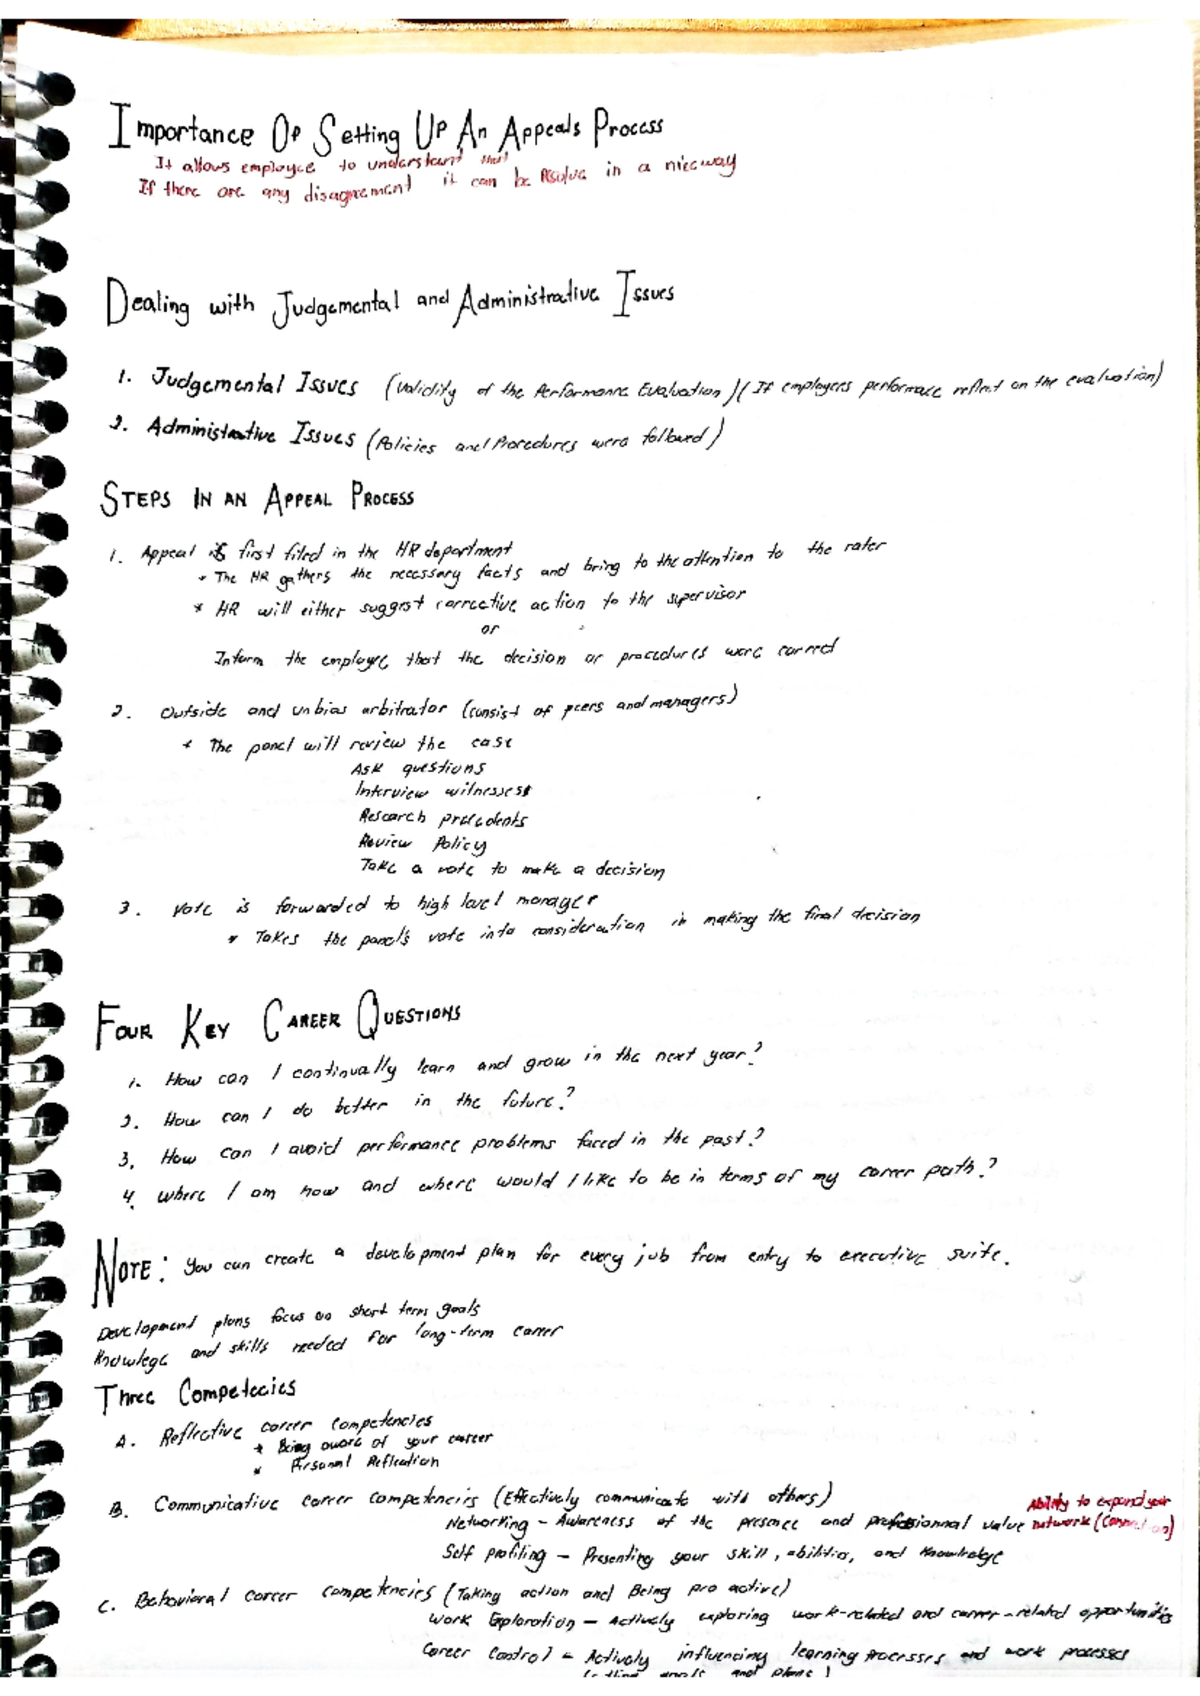 Importance Of Setting Up An Appeals Process
It allows employee to understant that
If there are any disagreement it can be Resolve in a niceway
Dealing with Judgemental and Administrative Issues
1. Judgemental Issues (Validity of the Performance Evaluation) (If employees performace reflect on the evaluation)
2. Administrative Issues (Policies and Procedures were followed)
STEPS IN AN APPEAL PROCESS
1. Appeal is first filed in the HR department
* The HR gathers the necessary facts and bring to the attention to the rater
* HR will either suggest corrective action to the supervisor
or
Inform the employee that the decision or procedures were correct
2. Outside and unbias arbitrator (consist of peers and managers)
* The panel will review the case
Ask questions
Interview witnesses
Research precedents
Review Policy
Take a vote to make a decision
3. Vote is forwarded to high level manager
* Takes the panel's vote into consideration in making the final decision
FOUR KEY CAREER QUESTIONS
1. How can I continually learn and grow in the next year?
2. How can I do better in the future?
3. How can I avoid performance problems faced in the past?
4. Where I am now and where would I like to be in terms of my career path?
NOTE: You can create a development plan for every job from entry to executive suite.
Development plans focus on short term goals
Knowlege and skills needed for long-term career
Three Competecies
A. Reflective career competencies
* Being aware of your career
* Personal Reflection
B. Communicative career competencies (Effectively communicate with others)
Ability to expand your
Networking - Awareness of the presence and professionnal value network (Connection)
Self profiling - Presenting your skill, abilities, and Knowledge
C. Behavioral career competencies (Taking action and Being pro active)
Work Exploration - Actively exploring work-related and career-related opportunities
Career Control - Actively influencing learning processes and work processes
(setting goals and plans)